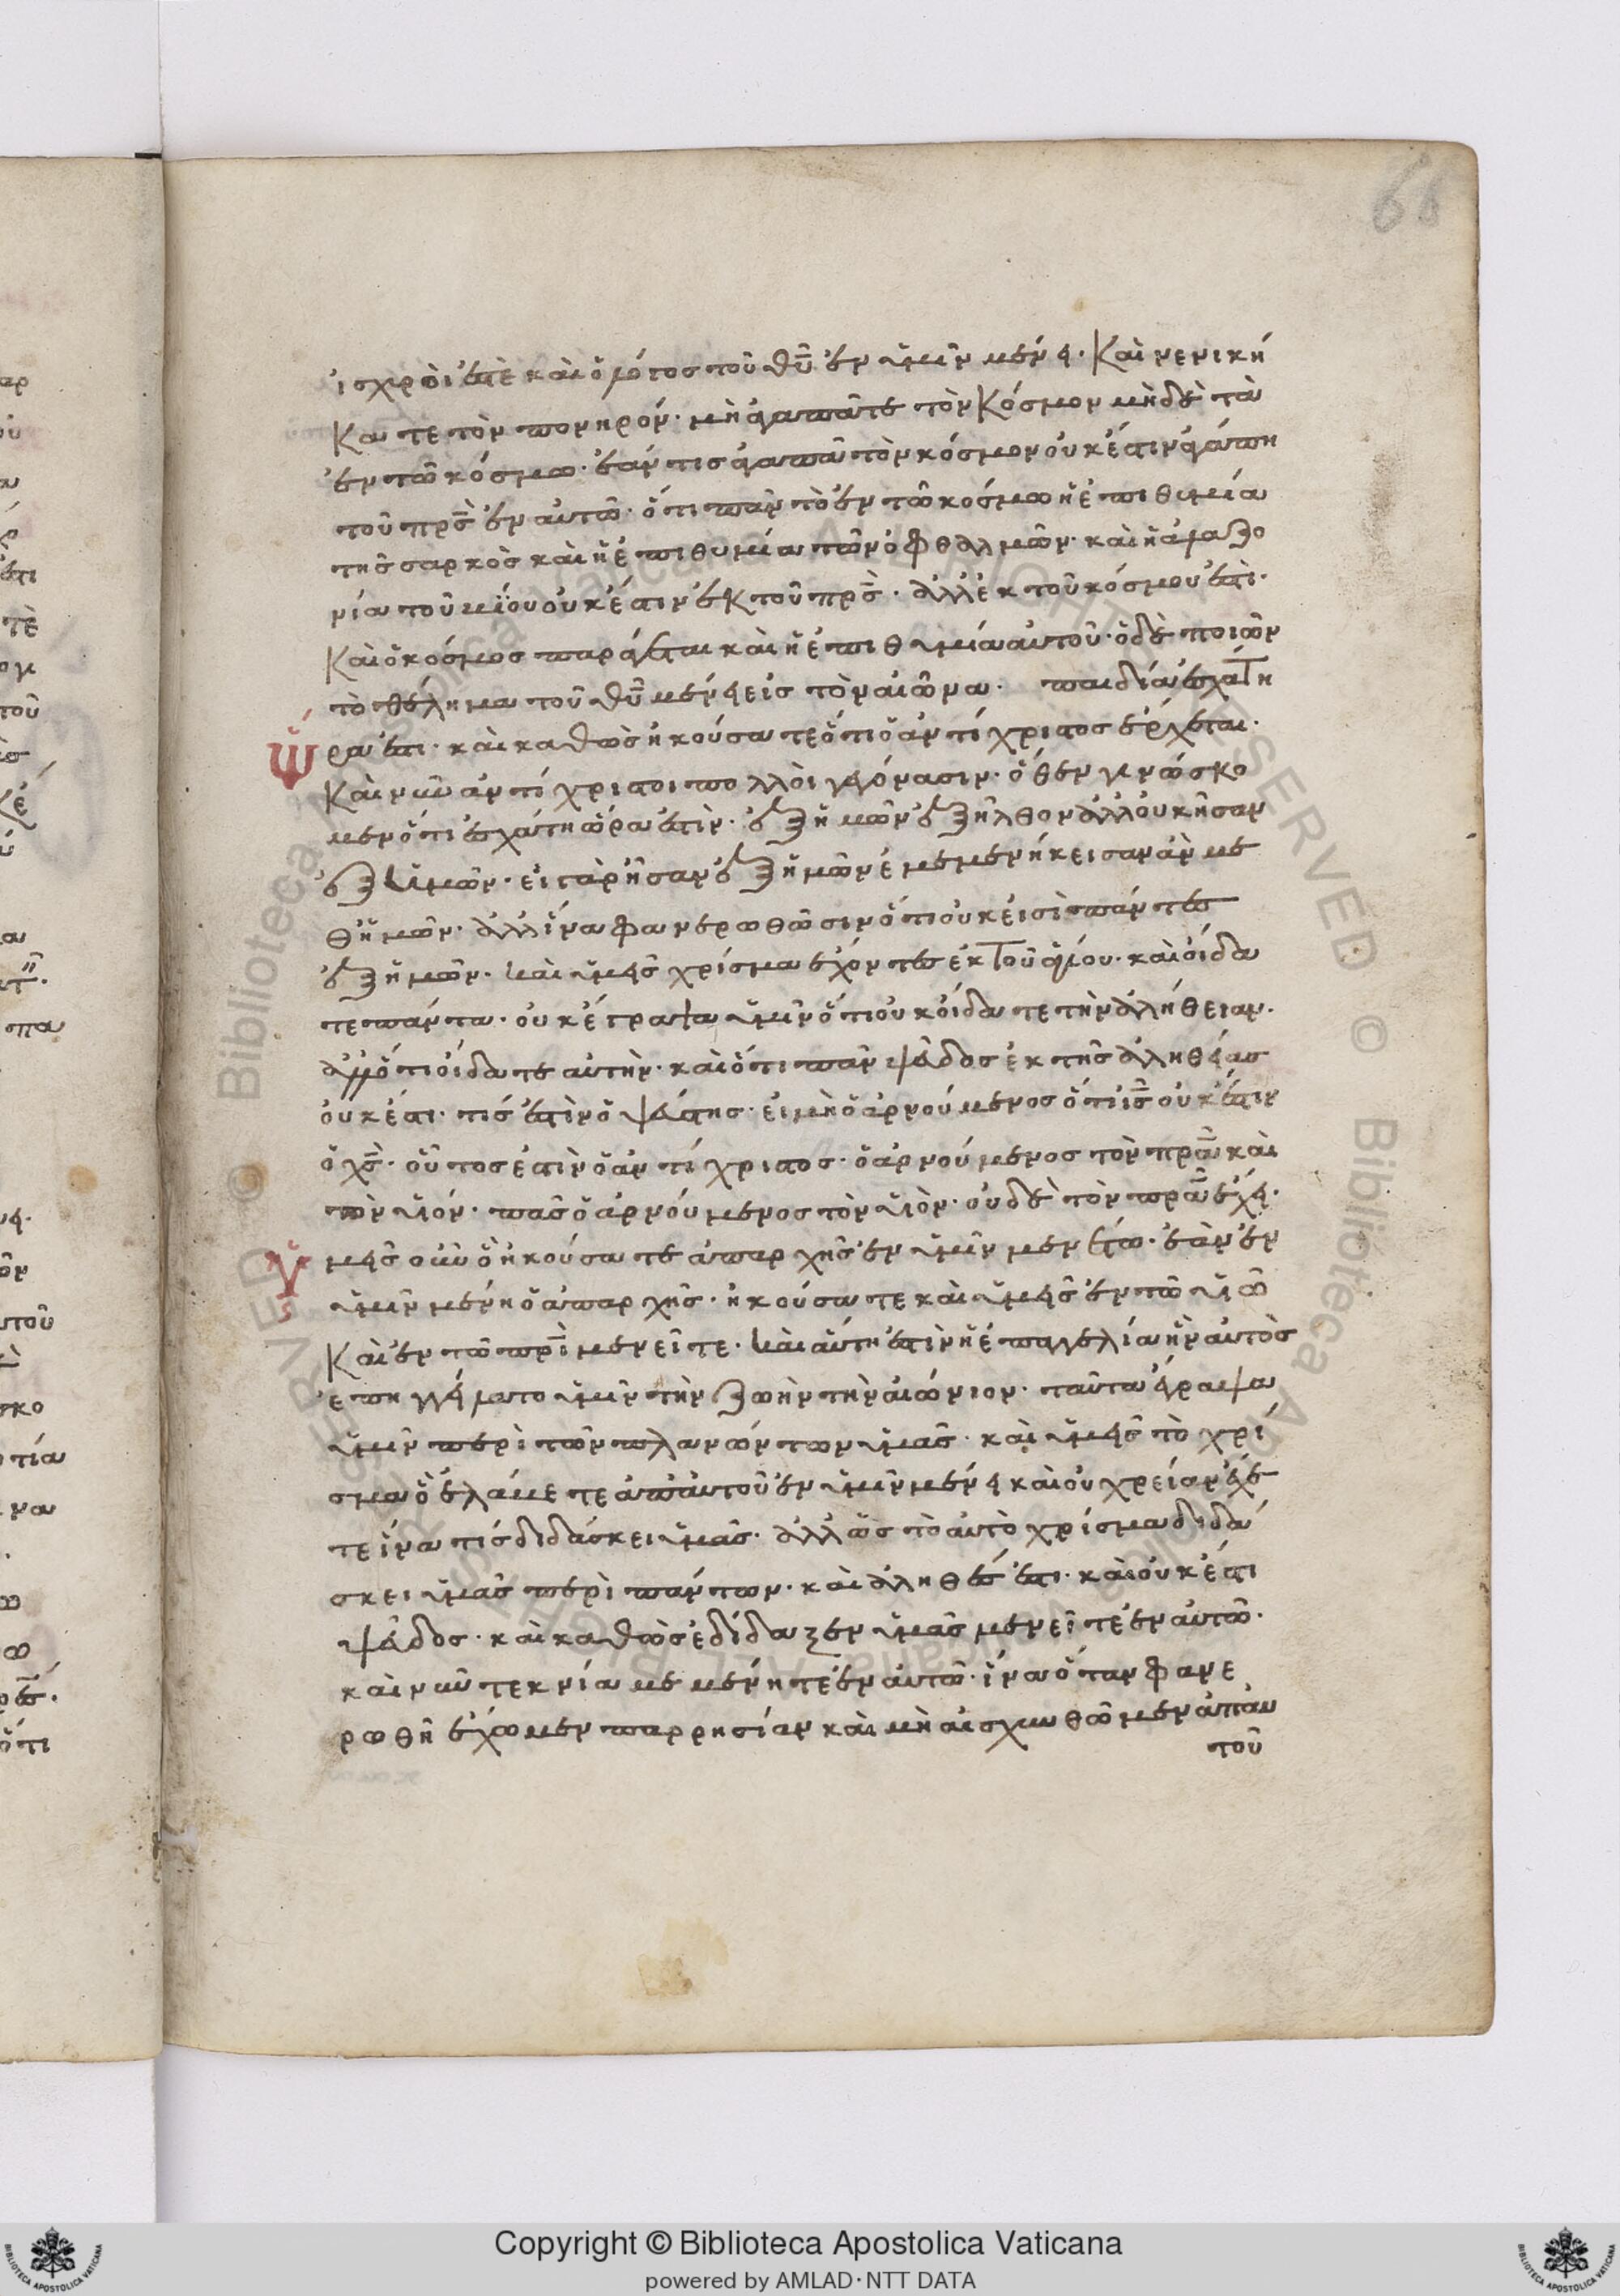 66
ἰσχυροί ἐστὲ καὶ ὁ λόγος τοῦ θῦ ἐν ὑμῖν μένει. Καὶ νενική
Κατε τὸν πονηρόν. μὴ ἀγαπᾶτε τὸν Κόσμον μηδὲ τὰ
ἐν τῶ κόσμω. ἐάν τις ἀγαπᾶ τὸν κόσμον οὐκ ἔστιν ἡ ἀγάπη
τοῦ πρς ἐν αυτῶ. ὅτι πᾶν τὸ ἐν τῶ κοσμω ἡ ἐπιθυμία
τῆς σαρκὸς καὶ ἡ ἐπιθυμία τῶν ὀφθαλμῶν. καὶ ἡ ἀλαζο
νία τοῦ βίου οὐκ ἔστιν ἐκ τοῦ πρς. ἀλλ' ἐκ τοῦ κόσμου ἐστὶ.
Καὶ ὁ κόσμος παράγεται καὶ ἡ ἐπιθυμία αυτοῦ. ὁ δὲ ποιῶν
τὸ θέλημα τοῦ θῦ μένει εἰς τὸν αἰῶνα. παιδία ἐσχάτη
ὥρα ἐστι. καὶ καθὼς ἠκούσατε ὅτι ὁ ἀντίχριστος ἔρχεται.
Καὶ νῦν ἀντίχριστοι πολλοὶ γεγόνασιν. ὅθεν γινώσκο
μεν ὅτι ἐσχάτη ὥρα ἐστὶν. ἐξ ἡμῶν ἐξῆλθον ἀλλ' οὐκ ἦσαν
ἐξ ἡμῶν. εἰ γὰρ ἦσαν ἐξ ἡμῶν ἐμεμενήκεισαν ἂν με
θ' ἡμῶν. ἀλλ' ἵνα φανερωθῶσιν ὅτι οὐκ εἰσὶ πάντες
ἐξ ἡμῶν. καὶ ὑμεῖς χρίσμα ἔχοντες ἐκ τοῦ ἁγίου. καὶ οἴδα
τε πάντα. οὐκ ἔγραψα ὑμῖν ὅτι οὐκ οἴδατε τὴν ἀλήθειαν.
ἀλλ' ὅτι οἴδατε αὐτὴν. καὶ ὅτι πᾶν ψεῦδος ἐκ τῆς ἀληθείας
οὐκ ἔστι. τίς ἐστὶν ὁ ψεύστης. εἰ μὴ ὁ ἀρνούμενος ὅτι ις οὐκ ἔστιν
ὁ χς. οὗτος ἐστὶν ὁ ἀντίχριστος. ὁ ἀρνούμενος τὸν πρα καὶ
τὸν υἱόν. πᾶς ὁ ἀρνούμενος τὸν υἱὸν. οὐδὲ τὸν πρα ἔχει.
Ὑμεῖς οὖν ὃ ἠκούσατε ἀπαρχῆς ἐν ὑμῖν μενέτω. ἐὰν ἐν
ὑμῖν μένη ὃ ἀπαρχῆς. ἠκούσατε καὶ ὑμεῖς ἐν τῶ υἱῶ
Καὶ ἐν τῶ πρι μενεῖτε. καὶ αὕτη ἐστὶν ἡ ἐπαγγελία ἣν αυτὸς
ἐπηγγείλατο ὑμῖν τὴν ζωὴν τὴν αἰώνιον. ταῦτα ἔγραψα
ὑμῖν περὶ τῶν πλανώντων ὑμᾶς. καὶ ὑμεῖς τὸ χρί
σμα ὃ ἐλάβετε ἀπ' αυτοῦ ἐν ὑμῖν μένει καὶ οὐ χρείαν ἔχε
τε ἵνα τίς διδάσκει ὑμᾶς. ἀλλ' ὡς τὸ αὐτὸ χρίσμα διδά
σκει ὑμᾶς περὶ πάντων. καὶ ἀληθές ἐστι. καὶ οὐκ ἔστι
ψεῦδος. καὶ καθὼς ἐδίδαξεν ὑμᾶς μενεῖτε ἐν αὐτῶ.
καὶ νῦν τεκνία μένητε ἐν αὐτῶ. ἵνα ὅταν φανε
ρωθῆ ἔχωμεν παρρησίαν καὶ μὴ αἰσχυνθῶμεν ἀπ' αυ
τοῦ
Copyright © Biblioteca Apostolica Vaticana
powered by AMLAD·NTT DATA